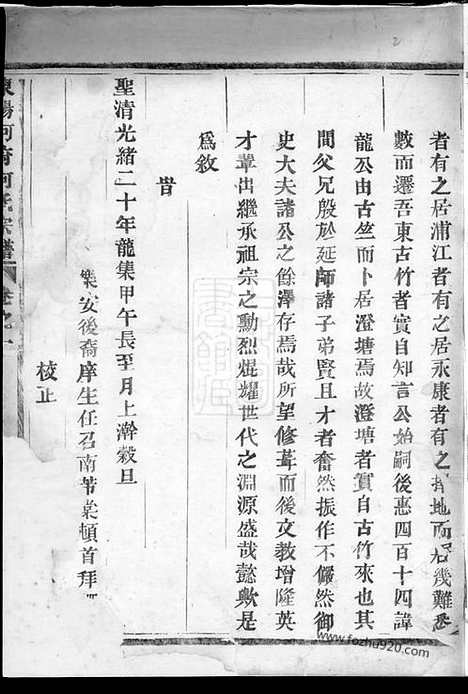 者有之居浦江者有之居永康者有之 地而 幾難悉
數而遷吾東古竹者實自知言公始嗣後惠四百十四諱
龍公由古竺而卜居澄塘焉故澄塘者實自古竹來也其
間父兄殷於延師諸子弟賢且才者奮然振作不儼然御
史大夫諸公之餘澤存焉哉所望修葺而後文教增隆英
才輩出繼承祖宗之勳烈焜耀世代之淵源盛哉懿歟是
爲敘
旹
聖清光緒二十年龍集甲午長至月上澣穀旦
樂安後裔庠生任召南芾棠頓首拜
校正
宗譜
卷之一
www.fozhu920.com